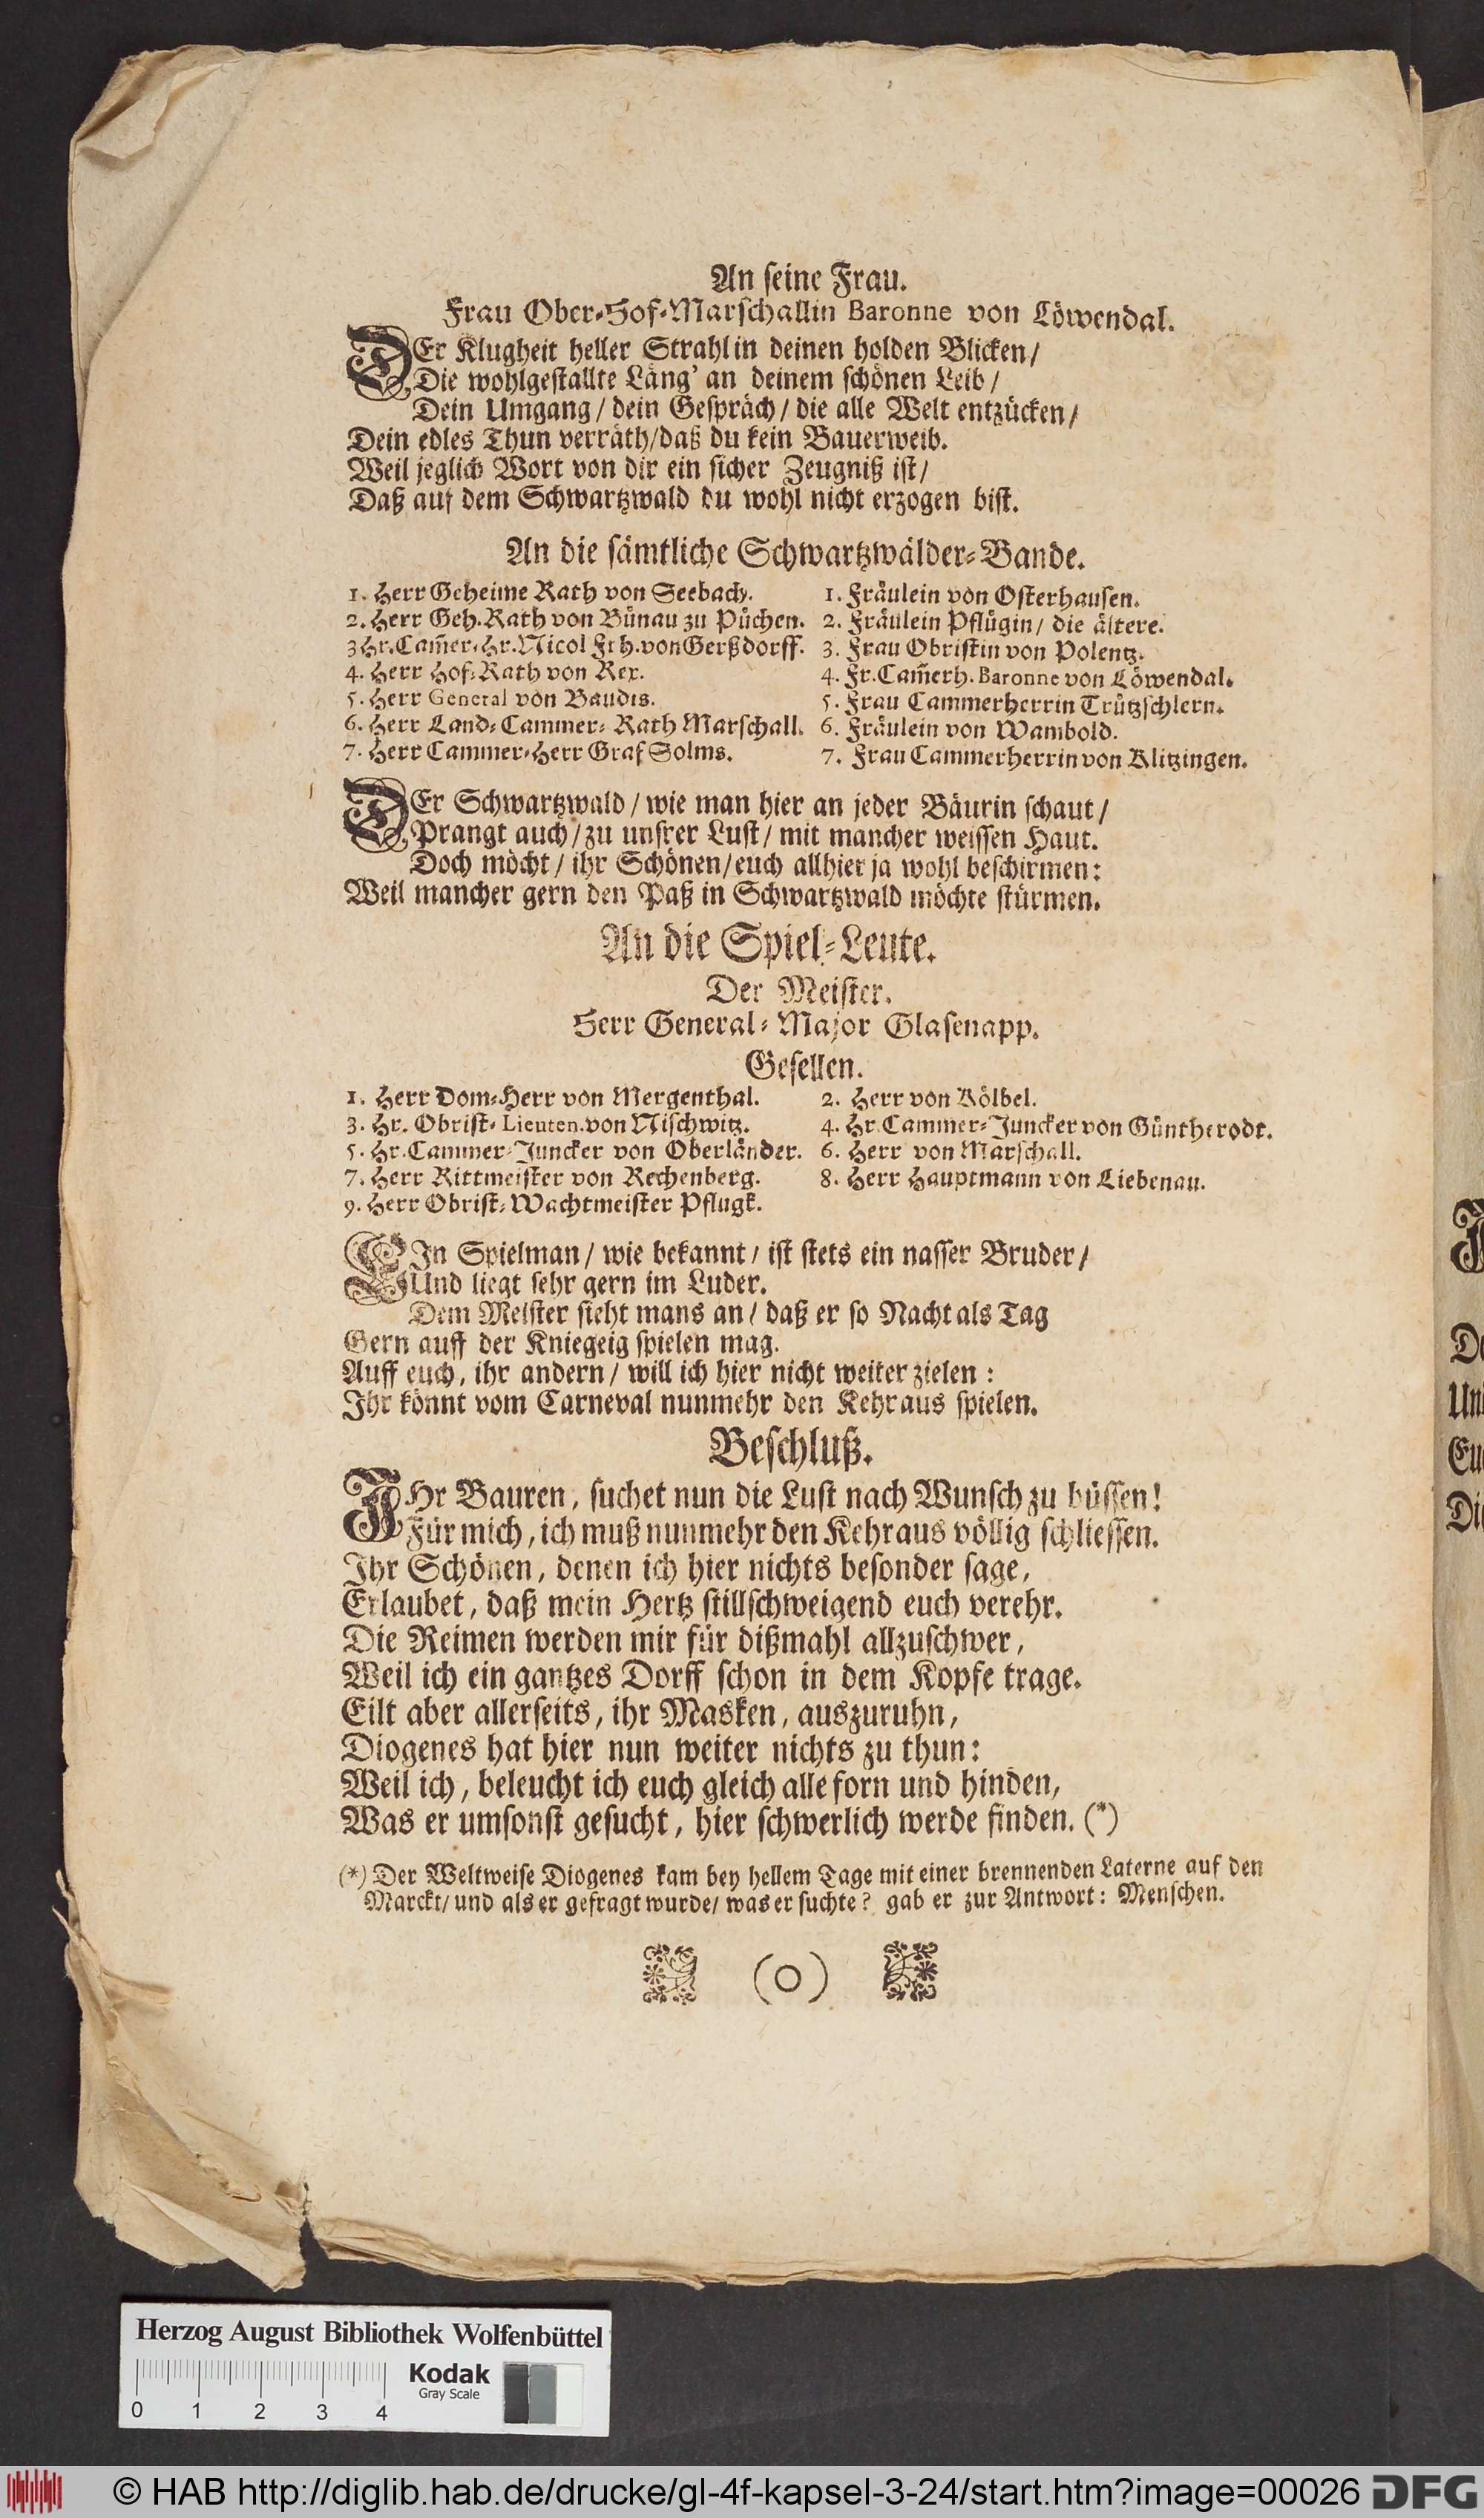 An seine Frau.
Frau Ober-Hof-Marschallin Baronne von Löwendal.
DEr Klugheit heller Strahl in deinen holden Blicken/
Die wohlgestallte Läng' an deinem schönen Leib/
Dein Umgang/ dein Gespräch/ die alle Welt entzücken/
Dein edles Thun verräth/ daß du kein Bauerweib.
Weil jeglich Wort von dir ein sicher Zeugniß ist/
Daß auf dem Schwartzwald du wohl nicht erzogen bist.
An die sämtliche Schwartzwälder-Bande.
1. Herr Geheime Rath von Seebach.
2. Herr Geh. Rath von Bünau zu Püchen.
3 Hr. Cam̃er-Hr. Nicol Frh. von Gerßdorff.
4. Herr Hof-Rath von Rex.
5. Herr General von Baudis.
6. Herr Land-Cammer-Rath Marschall.
7. Herr Cammer-Herr Graf Solms.
1. Fräulein von Osterhausen.
2. Fräulein Pflügin/ die ältere.
3. Frau Obristin von Polentz.
4. Fr. Cam̃erh. Baronne von Löwendal.
5. Frau Cammerherrin Trützschlern.
6. Fräulein von Wambold.
7. Frau Cammerherrin von Klitzingen.
DEr Schwartzwald/ wie man hier an jeder Bäurin schaut/
Prangt auch/ zu unsrer Lust/ mit mancher weissen Haut.
Doch möcht/ ihr Schönen/ euch allhier ja wohl beschirmen:
Weil mancher gern den Paß in Schwartzwald möchte stürmen.
An die Spiel-Leute.
Der Meister.
Herr General-Major Glasenapp.
Gesellen.
1. Herr Dom-Herr von Mergenthal. 2. Herr von Kölbel.
3. Hr. Obrist-Lieuten. von Nischwitz. 4. Hr. Cammer-Juncker von Güntherodt.
5. Hr. Cammer-Juncker von Oberländer. 6. Herr von Marschall.
7. Herr Rittmeister von Rechenberg. 8. Herr Hauptmann von Liebenau.
9. Herr Obrist-Wachtmeister Pflugk.
EIn Spielman/ wie bekannt/ ist stets ein nasser Bruder/
Und liegt sehr gern im Luder.
Dem Meister sieht mans an/ daß er so Nacht als Tag
Gern auff der Kniegeig spielen mag.
Auff euch, ihr andern/ will ich hier nicht weiter zielen:
Ihr könnt vom Carneval nunmehr den Kehraus spielen.
Beschluß.
IHr Bauren, suchet nun die Lust nach Wunsch zu büssen!
Für mich, ich muß nunmehr den Kehraus völlig schliessen.
Ihr Schönen, denen ich hier nichts besonder sage,
Erlaubet, daß mein Hertz stillschweigend euch verehr.
Die Reimen werden mir für dißmahl allzuschwer,
Weil ich ein gantzes Dorff schon in dem Kopfe trage.
Eilt aber allerseits, ihr Masken, auszuruhn,
Diogenes hat hier nun weiter nichts zu thun:
Weil ich, beleucht ich euch gleich alle forn und hinden,
Was er umsonst gesucht, hier schwerlich werde finden. (*)
(*) Der Weltweise Diogenes kam bey hellem Tage mit einer brennenden Laterne auf den
Marckt/ und als er gefragt wurde/ was er suchte? gab er zur Antwort: Menschen.
(O)
De
Un
Eu
Di
Herzog August Bibliothek Wolfenbüttel
Kodak
Gray Scale
0 1 2 3 4
© HAB http://diglib.hab.de/drucke/gl-4f-kapsel-3-24/start.htm?image=00026 DFG